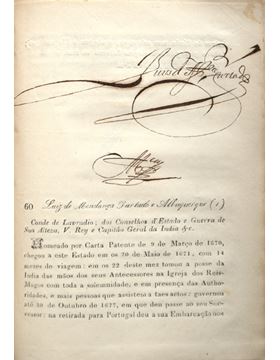 60 Luiz de Mendonça Furtado e Albuquerque (1)
Conde de Lavradio; dos Conselhos d'Estado e Guerra de
Sua Alteza, V. Rey e Capitão Geral da India &c.
Nomeado por Carta Patente de 9 de Março de 1670,
chegou a este Estado em 20 de Maio de 1671, com 14
mezes de viagem: em 22 deste mez tomou a posse da
India das mãos dos seus Antecessores na Igreja dos Reis-
Magos com toda a solemnidade, e em presença das Autho-
ridades, e mais pessoas que assistem a taes actos: governou
até 30 de Outubro de 1677, em que deu posse ao seu Suc-
cessor: na retirada para Portugal deu a sua Embarcação nos